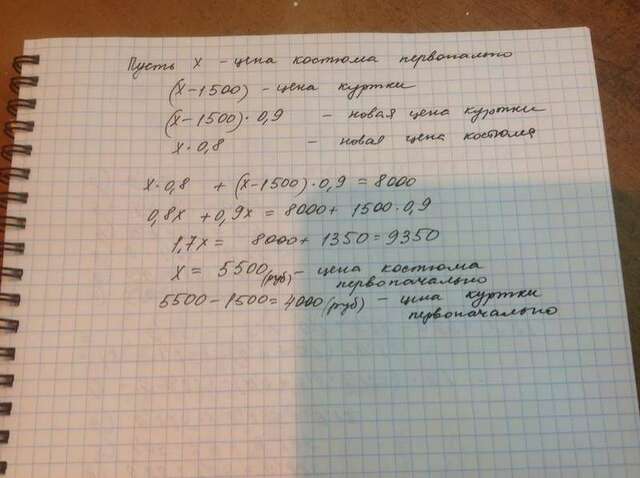 Пусть х - цена костюма первоначально
(х-1500) - цена куртки
(х-1500)·0,9 - новая цена куртки
х·0,8 - новая цена костюма
х·0,8 + (х-1500)·0,9 = 8000
0,8х + 0,9х = 8000 + 1500·0,9
1,7х = 8000 + 1350 = 9350
х = 5500 (руб) - цена костюма
первоначально
5500 - 1500 = 4000 (руб) - цена куртки
первоначально